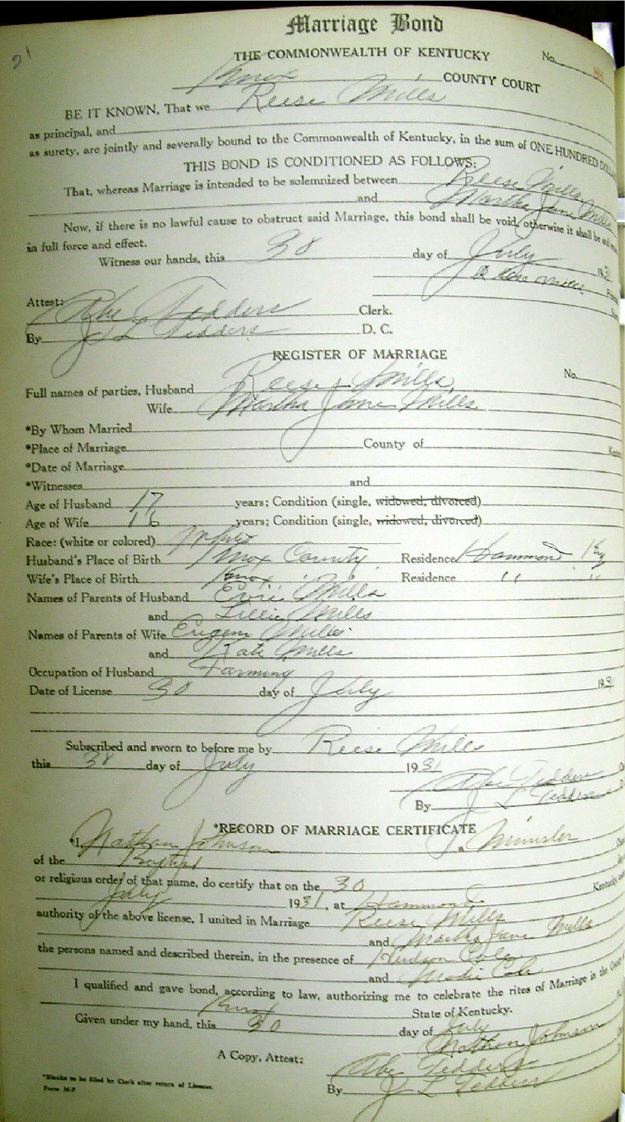 21
Marriage Bond
THE COMMONWEALTH OF KENTUCKY No.
Knox COUNTY COURT
BE IT KNOWN, That we Reese Mills
as principal, and
as surety, are jointly and severally bound to the Commonwealth of Kentucky, in the sum of ONE HUNDRED
THIS BOND IS CONDITIONED AS FOLLOWS:
That, whereas Marriage is intended to be solemnized between Reese Mills
and Martha Jane Mills
Now, if there is no lawful cause to obstruct said Marriage, this bond shall be void, otherwise it shall be and
in full force and effect.
Witness our hands, this 30 day of July 1931
Mills
Attest: Abe Tedders Clerk.
By J L Tedders D. C.
REGISTER OF MARRIAGE
No.
Full names of parties, Husband Reese Mills
Wife Martha Jane Mills
*By Whom Married
*Place of Marriage County of
*Date of Marriage
*Witnesses and
Age of Husband 17 years; Condition (single, widowed, divorced)
Age of Wife 16 years; Condition (single, widowed, divorced)
Race: (white or colored) White
Husband's Place of Birth Knox County Residence Hammond Ky
Wife's Place of Birth Knox " " Residence " "
Names of Parents of Husband Mills
and Lillie Mills
Names of Parents of Wife Eugene Mills
and Kate Mills
Occupation of Husband Farming
Date of License 30 day of July 1931
Subscribed and sworn to before me by Reese Mills
this 30 day of July 1931
Abe Tedders
By J L Tedders
*RECORD OF MARRIAGE CERTIFICATE
*I, Nathan Johnson a Minister
of the Baptist
or religious order of that name, do certify that on the 30
July 1931, at Hammond Kentucky,
authority of the above license, I united in Marriage Reese Mills
and Martha Jane Mills
the persons named and described therein, in the presence of Hudson Cole
and Cole
I qualified and gave bond, according to law, authorizing me to celebrate the rites of Marriage in the
Knox State of Kentucky.
Given under my hand, this 30 day of July
Nathan Johnson
A Copy, Attest: Abe Tedders
By J L Tedders
*Blanks to be filled by Clerk after return of License.
Form M-P